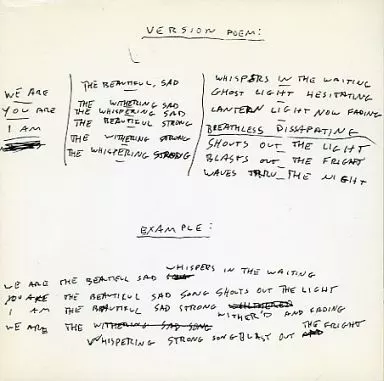 VERSION POEM:
WE ARE
YOU ARE
I AM
THE BEAUTIFUL, SAD
THE WITHERING SAD
THE WHISPERING SAD
THE BEAUTIFUL STRONG
THE WITHERING STRONG
THE WHISPERING STRONG
WHISPERS IN THE WAITING
GHOST LIGHT HESITATING
LANTERN LIGHT NOW FADING
BREATHLESS DISSAPATING
SHOUTS OUT THE LIGHT
BLASTS OUT THE FRIGHT
WAVES THRU THE NIGHT
EXAMPLE:
WE ARE THE BEATIFUL SAD WHISPERS IN THE WAITING
YOU ARE THE BEAUTIFUL SAD SONG SHOUTS OUT THE LIGHT
I AM THE BEAUTIFUL SAD STRONG WITHER'D AND FADING
WE ARE THE WITHERING SAD SONG
WHISPERING STRONG SONG BLAST OUT THE FRIGHT